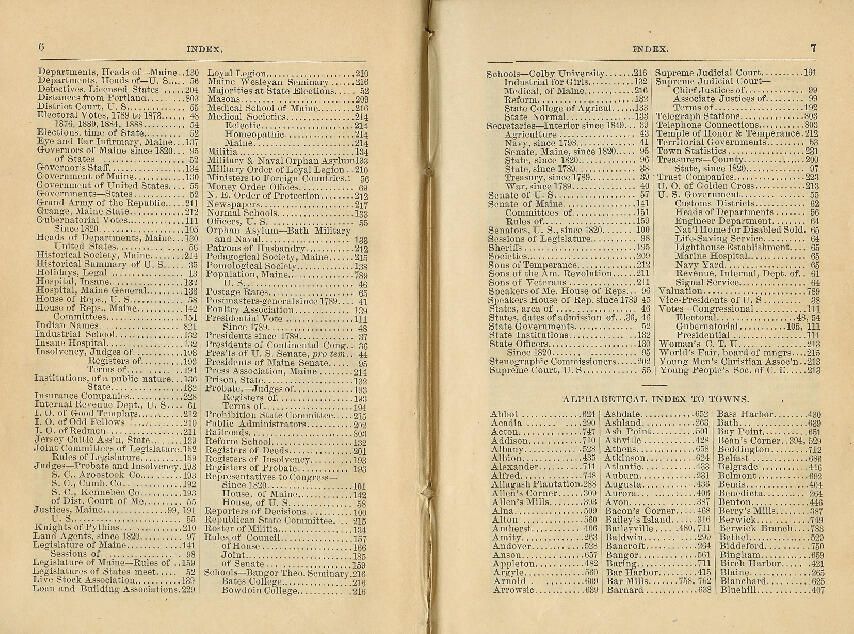 6
INDEX.
Departments, Heads of—Maine..130
Departments, Heads of—U. S.... 56
Detectives, Licensed States .....204
Distances from Portland.........803
District Court, U. S............. 55
Electoral Votes, 1789 to 1873..... 48
1876, 1880, 1884, 1888........ 54
Elections, time of State.......... 52
Eye and Ear Infirmary, Maine...137
Governors of Maine since 1820... 95
of States ..................... 52
Governor's Staff................134
Government of Maine...........130
Government of United States.... 55
Governments—States ........... 52
Grand Army of the Republic....211
Grange, Maine State.............212
Gubernatorial Votes.............111
Since 1820....................105
Heads of Departments, Maine..130
United States................. 56
Historical Society, Maine........214
Historical Summary of U. S...... 35
Holidays, Legal ................. 13
Hospital, Insane.................132
Hospital, Maine General.........139
House of Reps., U. S............. 58
House of Reps., Maine..........142
Committees....................151
Indian Names ...................821
Industrial School................132
Insane Hospital..................132
Insolvency, Judges of............193
Registers of....................193
Terms of.......................194
Institutions, of a public nature...136
State...........................132
Insurance Companies............228
Internal Revenue Dept., U. S..... 61
I. O. of Good Templars...........212
I. O. of Odd Fellows .............210
I. O. of Redmen..................211
Jersey Cattle Ass'n, State.........139
Joint Committees of Legislature.152
Rules of Legislature............159
Judges—Probate and Insolvency.193
S. C., Aroostook Co............193
S. C., Cumb. Co................192
S. C., Kennebec Co.............193
of Dist. Court of Me............ 55
Justices, Maine...............99, 191
U. S............................ 55
Knights of Pythias...............210
Land Agents, since 1820.......... 97
Legislature of Maine.............141
Sessions of .................... 98
Legislature of Maine—Rules of ..159
Legislatures of States meet....... 52
Live Stock Association...........139
Loan and Building Associations.229
Loyal Legion.....................210
Maine Wesleyan Seminary ......216
Majorities at State Elections..... 52
Masons..........................209
Medical School of Maine.........216
Medical Societies.................214
Eclectic........................214
Homeopathic..................214
Maine..........................214
Militia...........................134
Military & Naval Orphan Asylum133
Military Order of Loyal Legion...210
Ministers to Foreign Countries.. 56
Money Order Offices............. 69
N. E. Order of Protection.........212
Newspapers.....................217
Normal Schools..................133
Officers, U. S..................... 55
Orphan Asylum—Bath Military
and Naval.....................133
Patrons of Husbandry............212
Pedagogical Society, Maine......215
Pomological Society..............138
Population, Maine................789
U. S............................ 46
Postage Rates.................... 65
Postmasters-general since 1789... 41
Poultry Association..............139
Presidential Vote ................111
Since 1789...................... 48
Presidents since 1789............. 37
Presidents of Continental Cong.. 36
Pres'ts of U. S. Senate, pro tem... 44
Presidents of Maine Senate...... 95
Press Association, Maine.........214
Prison, State.....................132
Probate,—Judges of..............193
Registers of....................193
Terms of.......................194
Prohibition State Committee.....215
Public Administrators...........202
Railroads........................803
Reform School...................132
Registers of Deeds...............201
Registers of Insolvency..........193
Registers of Probate..............193
Representatives to Congress—
Since 1820.....................101
House, of Maine...............142
House, of U. S.................. 58
Reporters of Decisions...........100
Republican State Committee.....215
Roster of Militia..................134
Rules of Council..................157
of House ......................166
Joint...........................185
of Senate......................159
Schools—Bangor Theo. Seminary.216
Bates College..................216
Bowdoin College...............216
INDEX.
7
Schools—Colby University.......216
Industrial for Girls.............132
Medical, of Maine..............216
Reform.........................132
State College of Agricul........133
State Normal..................133
Secretaries—Interior since 1849.. 39
Agriculture .................... 43
Navy, since 1798............... 41
Senate, Maine, since 1820....... 95
State, since 1820................ 96
State, since 1789................ 38
Treasury, since 1789............ 39
War, since 1789................ 40
Senate of U. S.................... 57
Senate of Maine..................141
Committees of.................151
Rules of........................159
Senators, U. S., since 1820........100
Sessions of Legislature........... 98
Sheriffs...........................195
Societies..........................209
Sons of Temperance..............212
Sons of the Am. Revolution......211
Sons of Veterans.................211
Speakers of Me. House of Reps.. 96
Speakers House of Rep. since1789 45
States, area of.................... 46
States, dates of admission of..36, 46
State Governments............... 52
State Institutions.................132
State Officers.....................130
Since 1820..................... 95
Stenographic Commissioners....202
Supreme Court, U. S.............. 55
Supreme Judicial Court.........191
Supreme Judicial Court—
Chief Justices of............... 99
Associate Justices of........... 99
Terms of.......................192
Telegraph Stations...............803
Telephone Connections..........803
Temple of Honor & Temperance.212
Territorial Governments......... 53
Town Statistics..................231
Treasurers—County.............200
State, since 1820................ 97
Trust Companies................223
U. O. of Golden Cross............213
U. S. Government................ 55
Customs Districts.............. 62
Heads of Departments......... 56
Engineer Department.......... 64
Nat'l Home for Disabled Sold. 65
Life-Saving Service............. 64
Lighthouse Establishment..... 65
Marine Hospital................ 65
Navy Yard..................... 65
Revenue, Internal, Dept. of... 61
Signal Service.................. 64
Valuation........................789
Vice-Presidents of U. S........... 38
Votes—Congressional ...........111
Electoral....................48, 54
Gubernatorial .............105, 111
Presidential ...................111
Woman's C. T. U.................213
World's Fair, board of mngrs....215
Young Men's Christian Assoc'n..213
Young People's Soc. of C. E......213
ALPHABETICAL INDEX TO TOWNS.
Abbot ................624
Acadia ...............290
Acton.................747
Addison...............710
Albany................528
Albion................435
Alexander.............711
Alfred.................748
Allagash Plantation.288
Allen's Corner .......309
Allen's Mills..........303
Alna..................599
Alton.................560
Amherst..............406
Amity.................263
Andover..............528
Anson.................657
Appleton.............482
Argyle................560
Arnold ...............609
Arrowsic..............639
Ashdale...............652
Ashland...............263
Ash Point.............501
Ashville...............428
Athens................658
Atkinson..............624
Atlantic...............433
Auburn...............231
Augusta...............436
Aurora................406
Avon..................387
Bacon's Corner.......468
Bailey's Island........316
Baileyville.......480, 711
Baldwin...............290
Bancroft..............264
Bangor................561
Baring................711
Bar Harbor...........415
Bar Mills........758, 762
Barnard..............638
Bass Harbor..........430
Bath...................639
Bay Point..............651
Bean's Corner...394, 529
Beddington...........712
Belfast................686
Belgrade..............446
Belmont..............692
Bemis.................404
Benedicta.............264
Benton................446
Berry's Mills..........387
Berwick...............749
Berwick Branch......788
Bethel.................529
Biddeford.............750
Bingham..............659
Birch Harbor.........421
Blaine.................265
Blanchard............625
Bluehill...............407